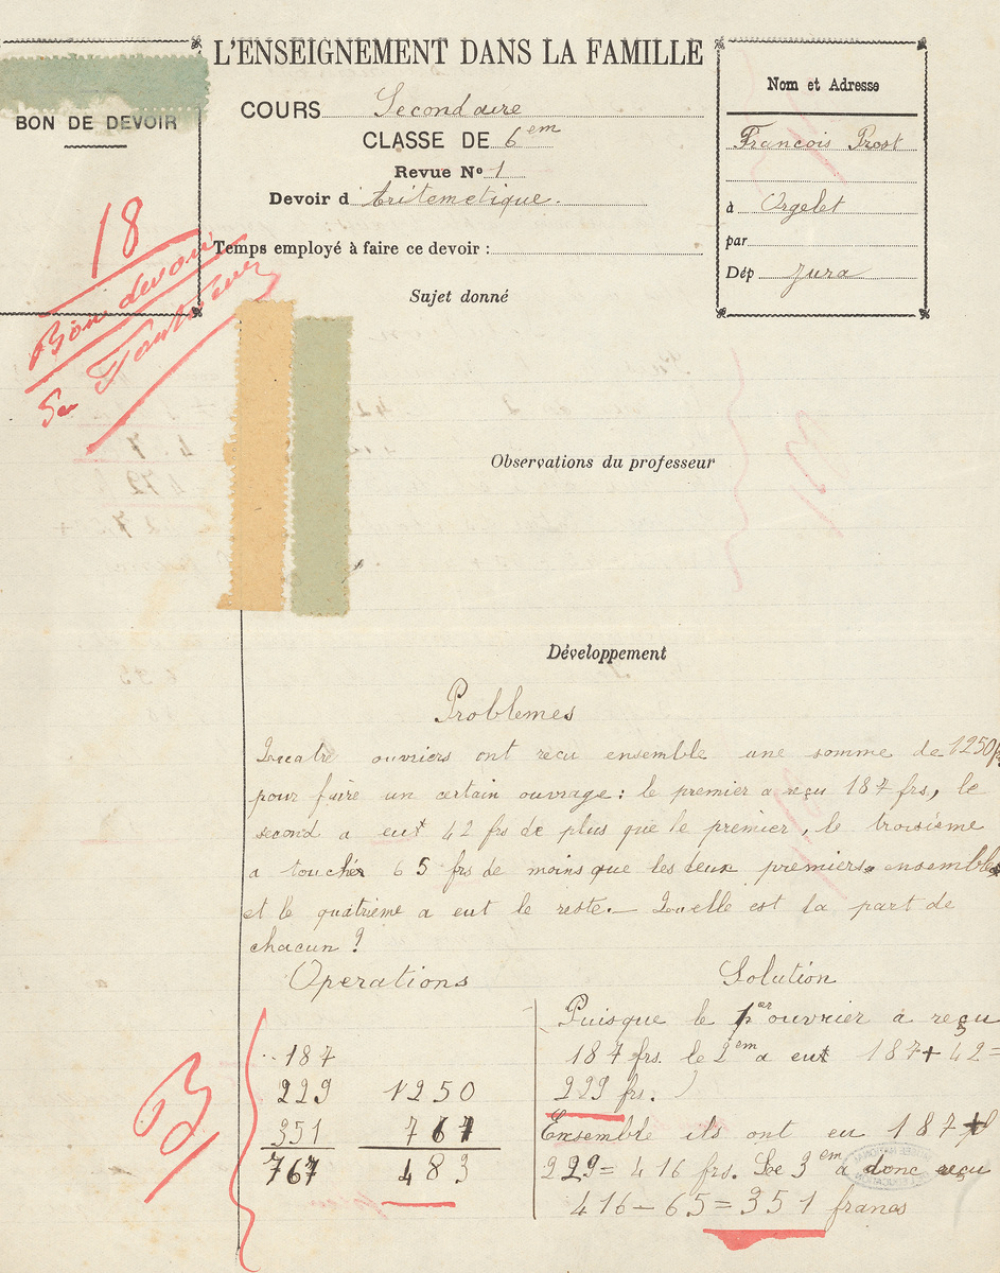 L'ENSEIGNEMENT DANS LA FAMILLE
BON DE DEVOIR
COURS Secondaire
CLASSE DE 6em
Revue No 1
Devoir d'Aritemetique.
Temps employé à faire ce devoir :
Nom et Adresse
Francois Prost
à Orgelet
par
Dép Jura
18
Bon devoir
Sujet donné
Observations du professeur
Développement
Problemes
Quatre ouvriers ont reçu ensemble une somme de 1250f
pour faire un certain ouvrage : le premier a reçu 187 frs, le
second a eut 42 frs de plus que le premier, le troisième
a touchér 65 frs de moins que les deux premiers ensembles
et le quatrième a eut le reste. _ Quelle est la part de
chacun ?
Operations
187
229 1250
351 767
767 483
Solution
Puisque le 1er ouvrier a reçu
187 frs. le 2em a eut 187+42=
229 frs.
Ensemble ils ont eu 187+
229= 416 frs. Le 3em a donc reçu
416-65=351 francs